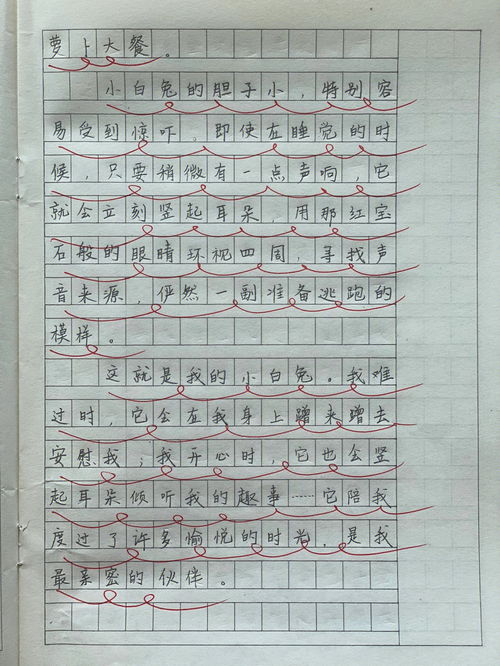 萝卜大餐。
小白兔的胆子小，特别容
易受到惊吓，即使在睡觉的时
候，只要稍微有一点声响，它
就会立刻竖起耳朵，用那红宝
石般的眼睛环视四周，寻找声
音来源，俨然一副准备逃跑的
模样。
这就是我的小白兔。我难
过时，它会在我身上蹭来蹭去
安慰我；我开心时，它也会竖
起耳朵倾听我的趣事……它陪我
度过了许多愉悦的时光，是我
最亲密的伙伴。